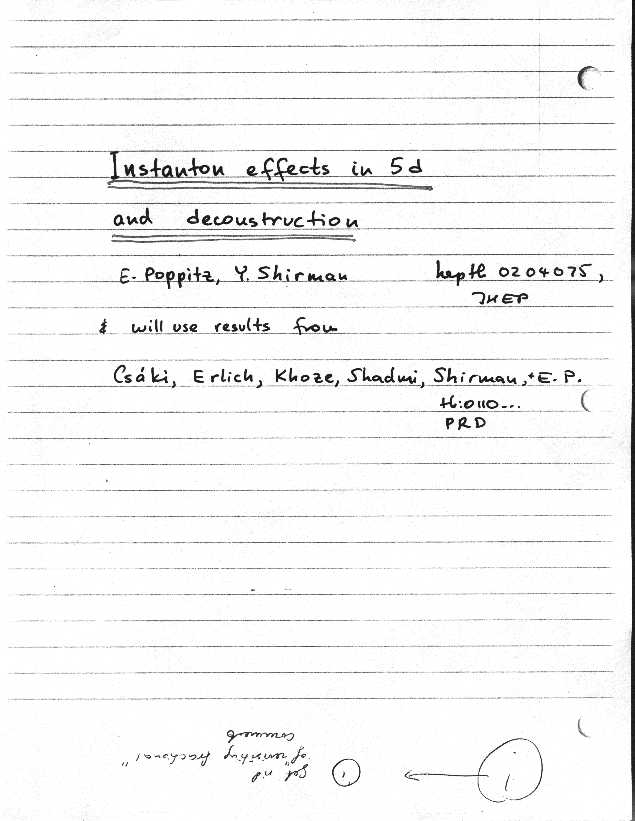 Instanton effects in 5d
and deconstruction
E. Poppitz, Y. Shirman hepth 0204075,
JHEP
& will use results from
Csáki, Erlich, Khoze, Shadmi, Shirman, + E. P.
th:0110...
PRD
i ← i get rid
of fractional"
comments